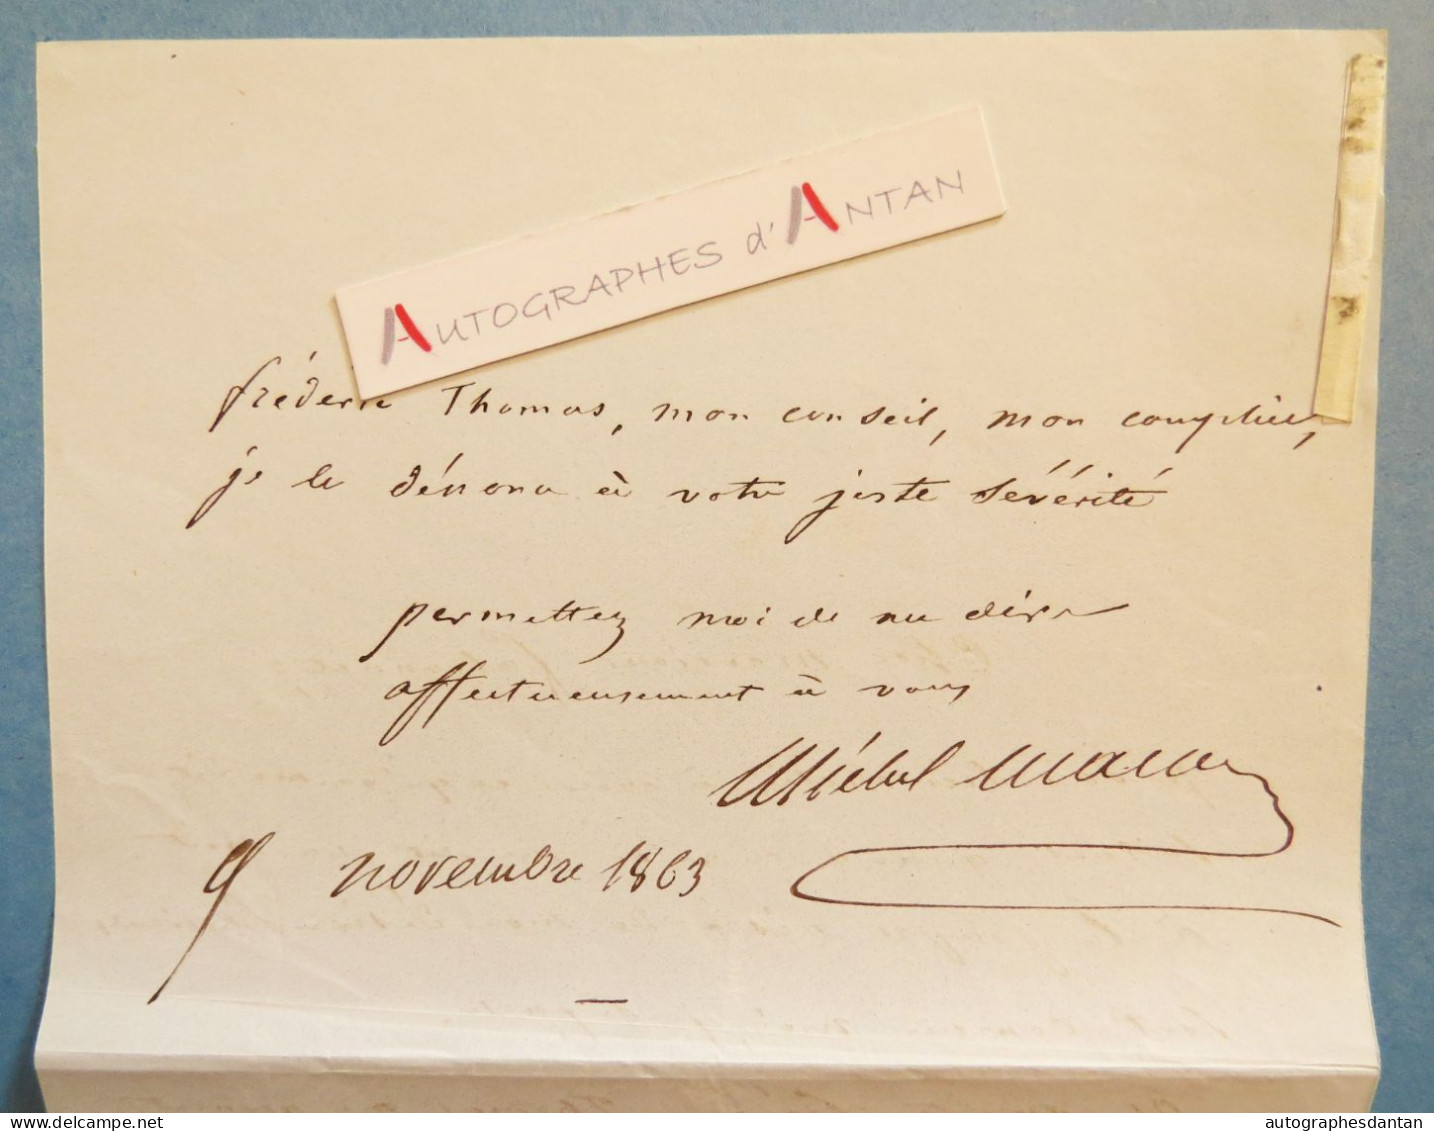 AUTOGRAPHES d'ANTAN
frédéric Thomas, mon conseil, mon complice,
je le dénonce à votre juste sévérité
permettez moi de me dire
affectueusement à vous
Michel Masson
9 novembre 1863
autographesdantan